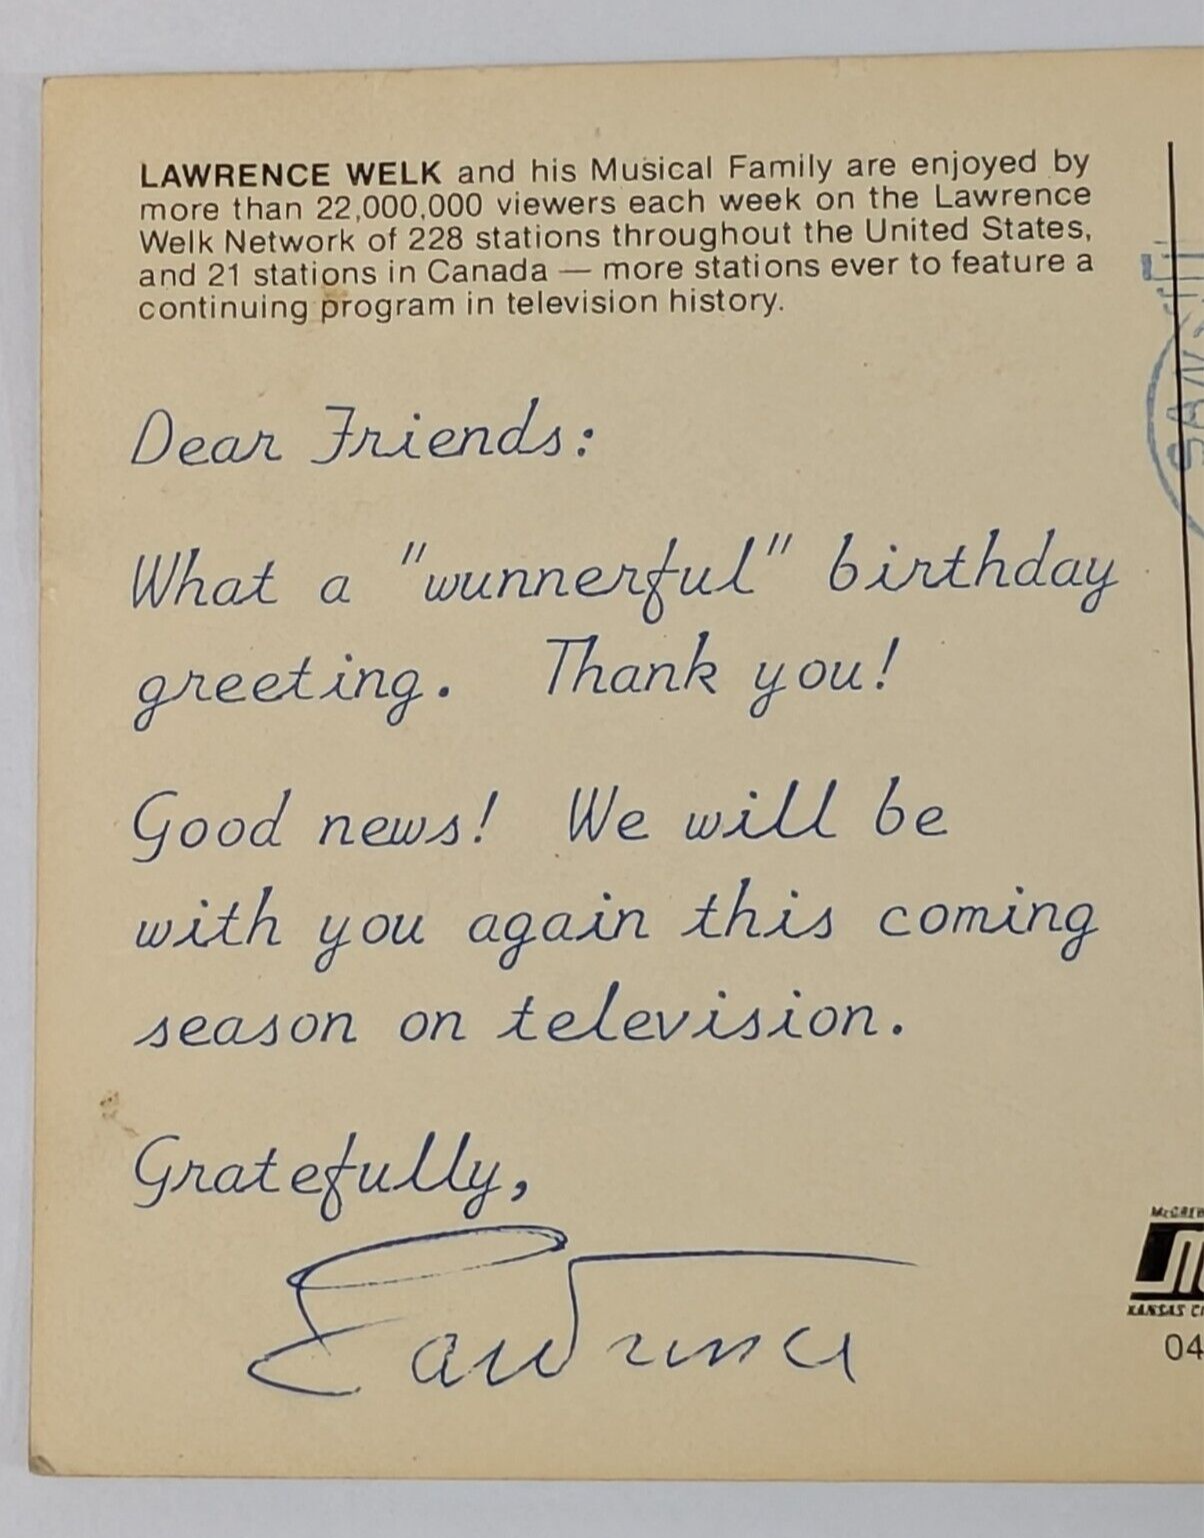 LAWRENCE WELK and his Musical Family are enjoyed by
more than 22,000,000 viewers each week on the Lawrence
Welk Network of 228 stations throughout the United States,
and 21 stations in Canada — more stations ever to feature a
continuing program in television history.
Dear Friends:
What a "wunnerful" birthday
greeting. Thank you!
Good news! We will be
with you again this coming
season on television.
Gratefully,
Lawrence
SAN
KANSAS
04